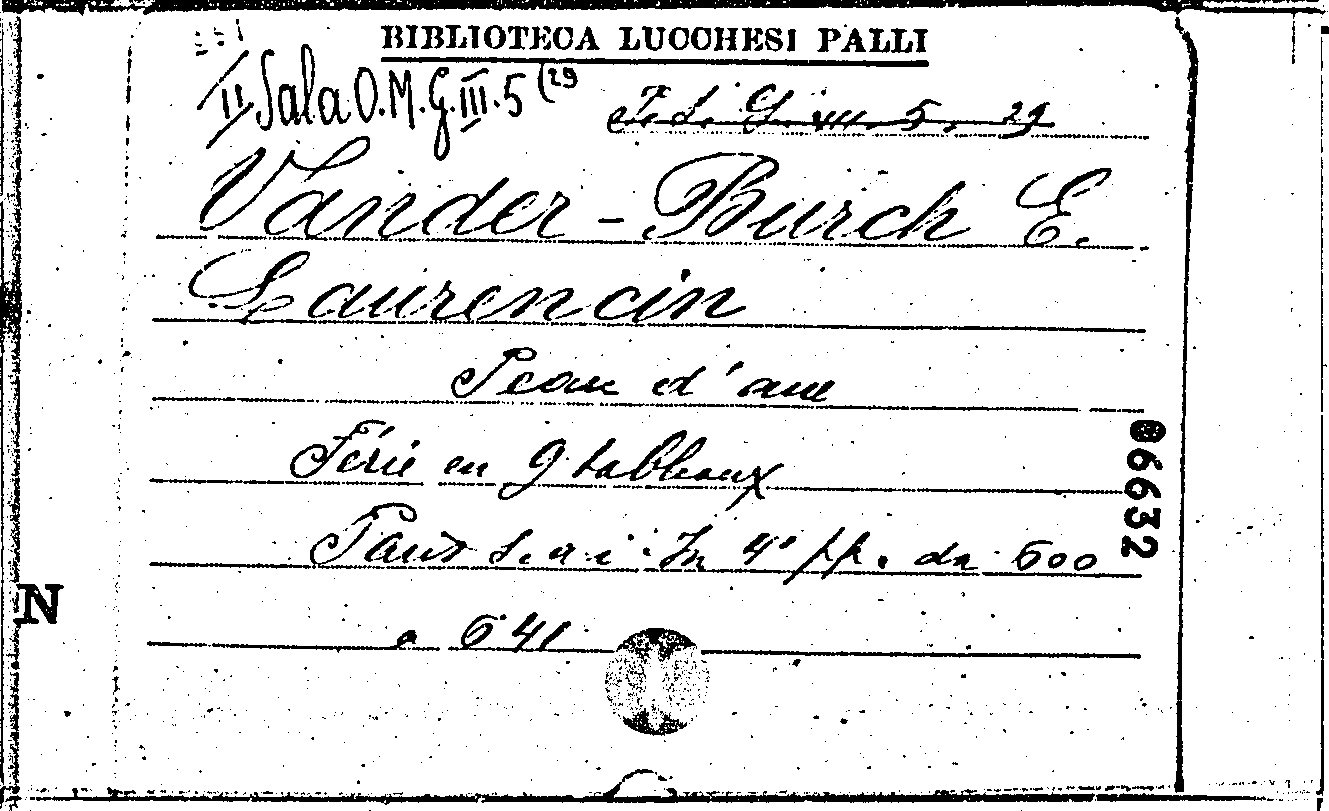 BIBLIOTECA LUCCHESI PALLI
II Sala O.M.G.III.5 (29
F. L. G. III. 5. 29
Vander-Burch E.
Laurencin
Peau d'ane
Férie en 9 tableaux
s. a i. In 4° pp. da 600
a 641
06632
N